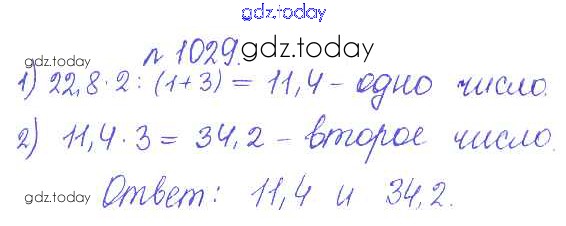 gdz.today
gdz.today
№ 1029. gdz.today
1) 22,8 · 2 : (1+3) = 11,4 - одно число.
2) 11,4 · 3 = 34,2 - второе число.
gdz.today
gdz.today
Ответ: 11,4 и 34,2.
gdz.today